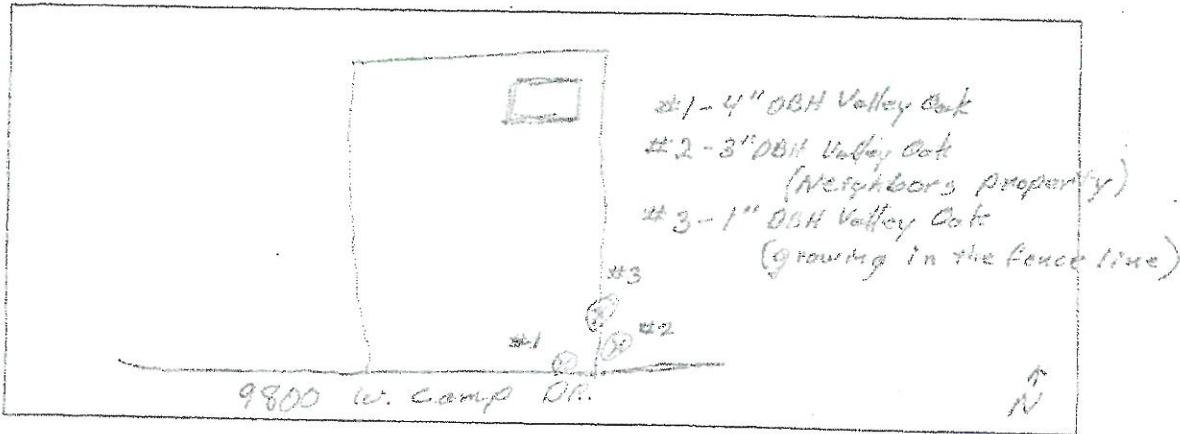 #1-4" DBH Valley Oak
#2-3" DBH Valley Oak
(Neighbors property)
#3-1" DBH Valley Oak
(growing in the fence line)
#3
#1 #2
9800 W. Camp DR.
N